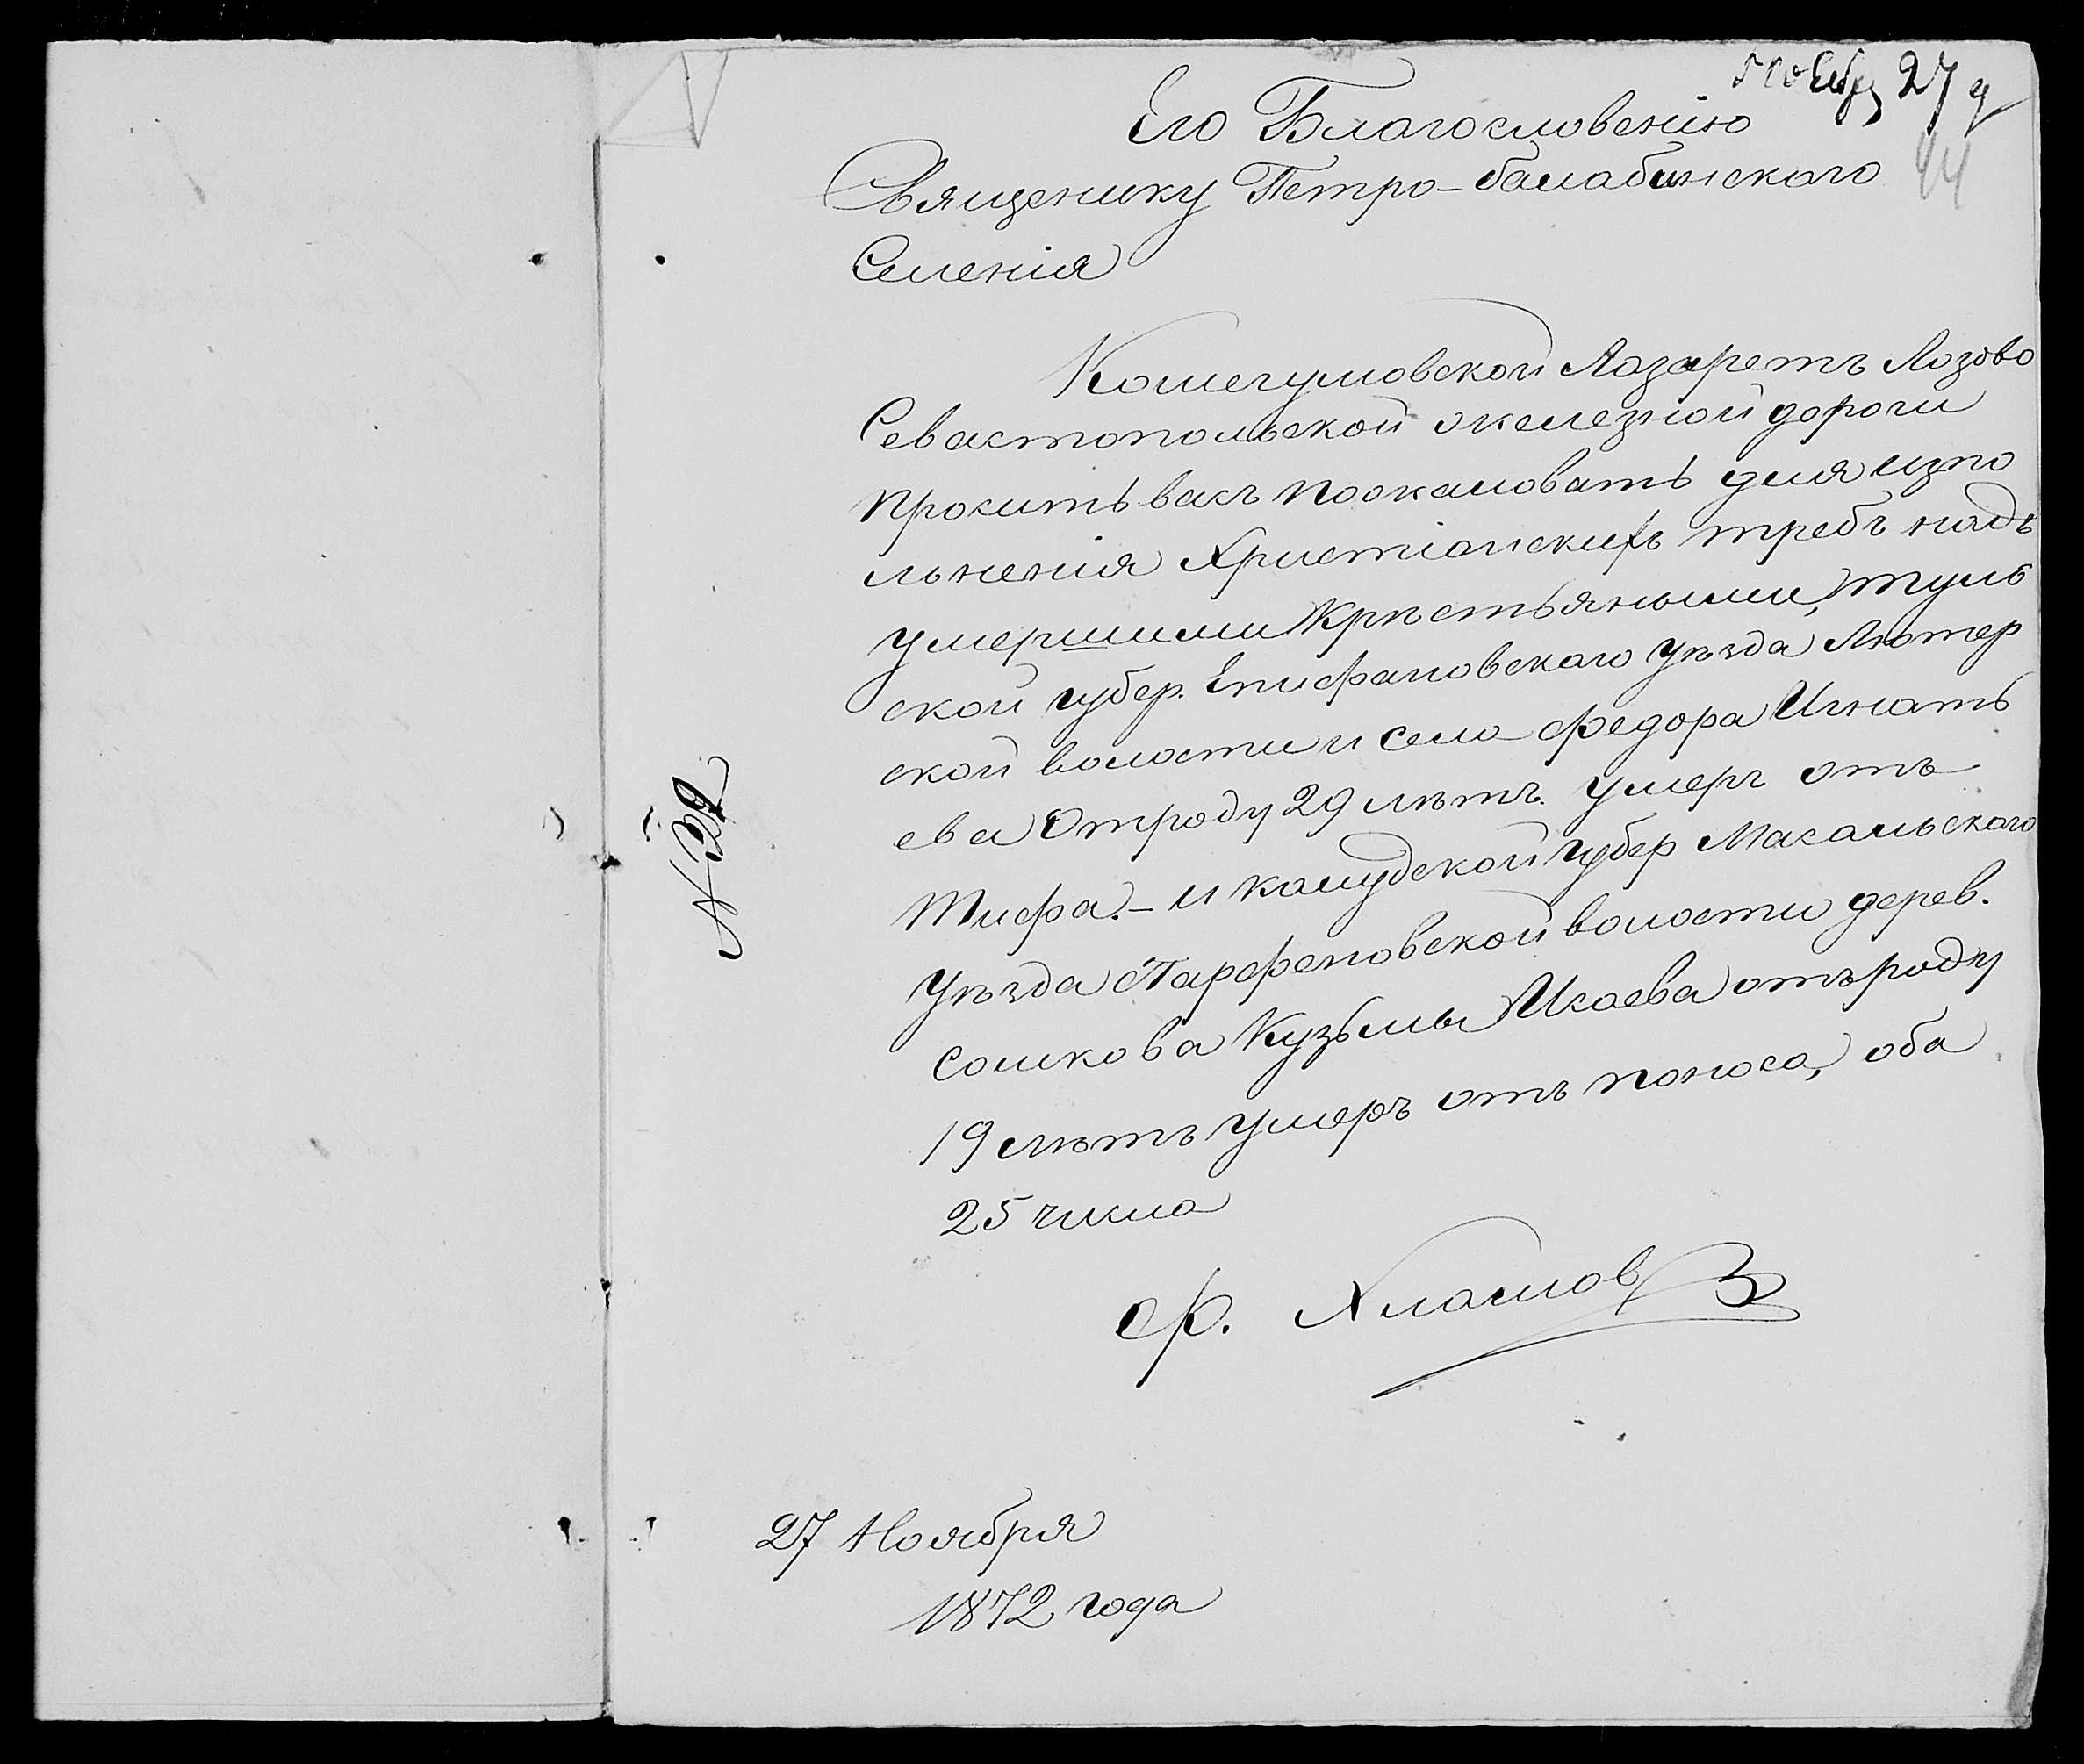 Ноябр 27 д
44
Его Благословению
Священику Петро-балабинскаго
Селенія
Кошегумовской Лазаретъ Лозово
Севастопольской железной дороги
проситъ васъ пожаловать для испо
льненія Христіанскихъ требъ надъ
умершими Крѣстьяными, туль
ской губер. Епифановскаго уѣзда Лютер
ской волости и села Федора Игнать
ева Отроду 29 лѣтъ. умеръ отъ
Тифа. – и калудской губер Масальскаго
Уѣзда Парфеновской волости дерев.
Сошкова Кузьмы Исаева отъроду
19 лѣтъ умеръ отъ поноса, оба
25 числа
Ф. Хламов
N 32
27 Ноября
1872 года